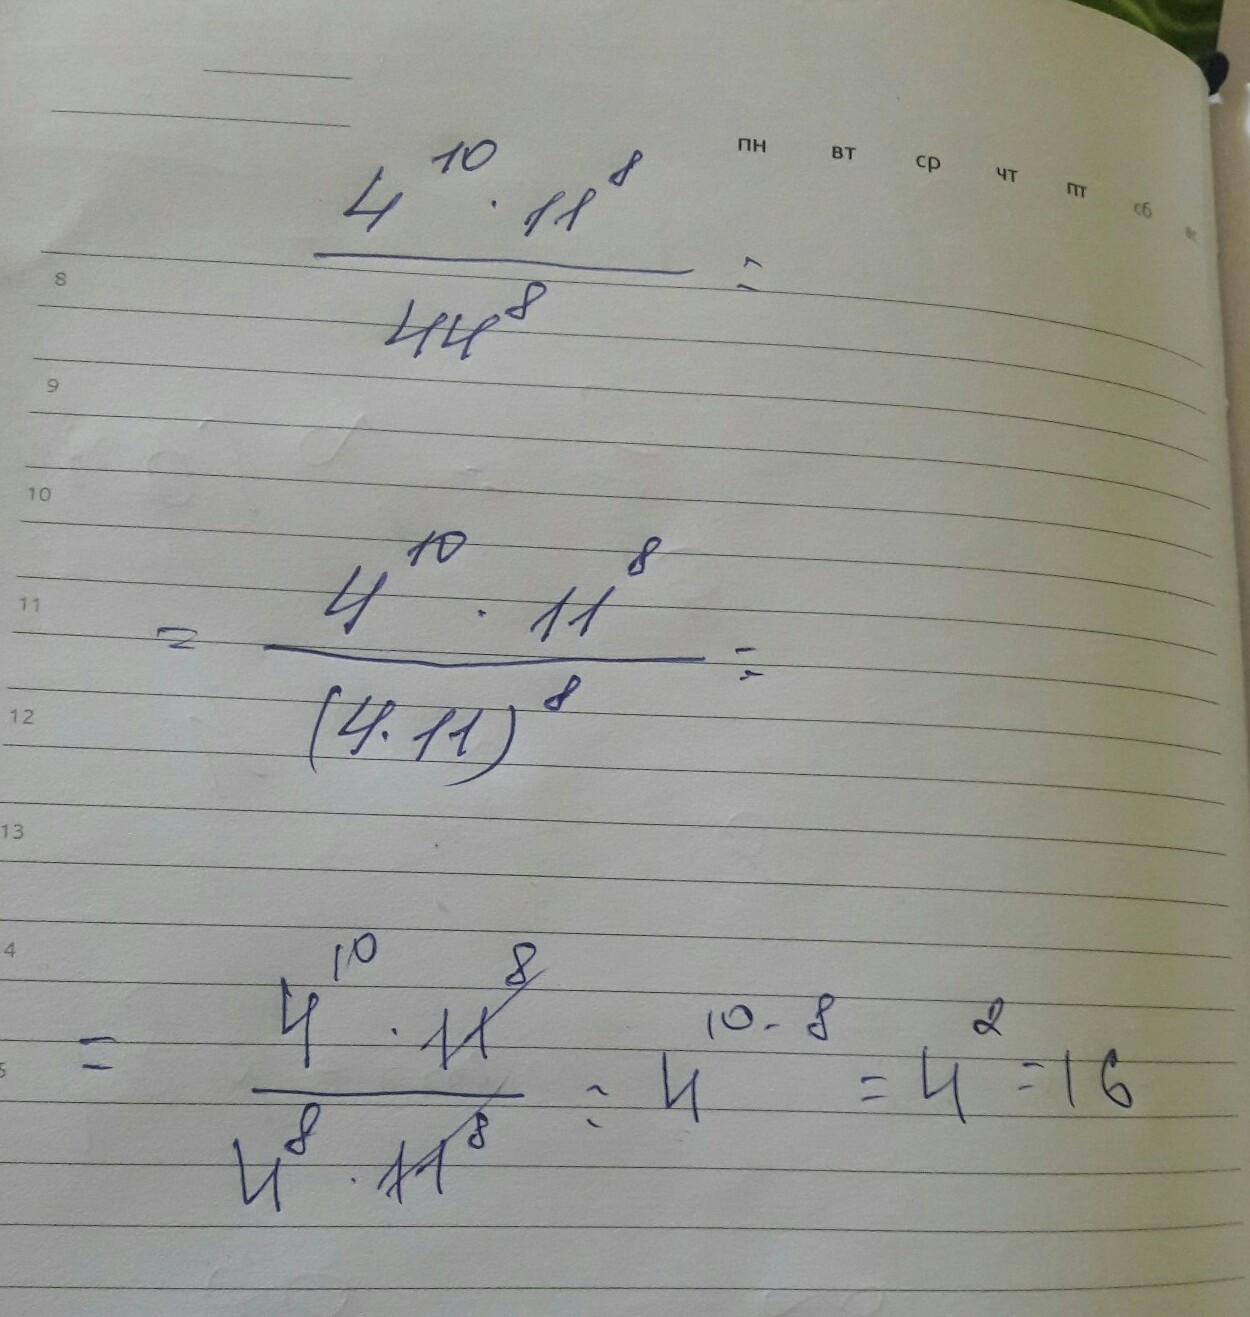 пн вт ср чт пт сб
4^10 · 11^8
44^8 =
8
9
10
= 4^10 · 11^8
11
(4 · 11)^8 =
12
13
4
= 4^10 · 11^8 = 4^10-8 = 4^2 = 16
5
4^8 · 11^8